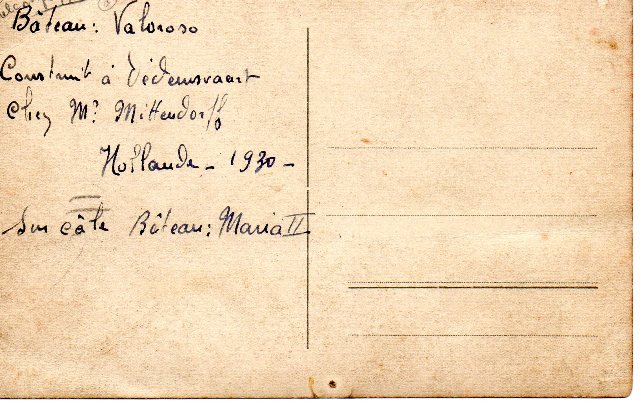 Bâteau: Valoroso
Construit à Dédemsvaart
Chez Mr. Mittendorff
Hollande - 1930 -
Sur câle Bâteau: Maria II